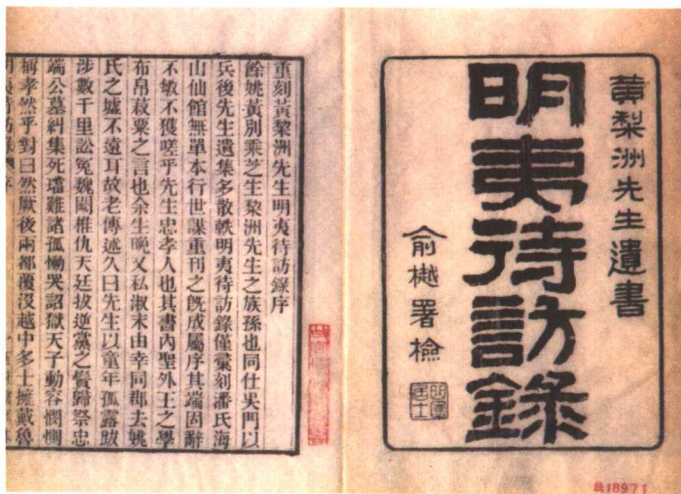 黃梨洲先生遺書
明夷待訪錄
俞樾署檢
重刻黃黎洲先生明夷待訪錄序
餘姚黃別乘芝生黎洲先生之族孫也同仕吳門以
兵後先生遺集多散軼明夷待訪錄僅彙刻潘氏海
山仙館無單本行世謀重刊之旣成屬序其端固辭
不敏不獲嗟乎先生忠孝人也其書內聖外王之學
布帛菽粟之言也余生晚又私淑末由幸同郡去姚
氏之墟不遠耳故老傳述久曰先生以童年孤露跋
涉數千里訟冤魏闕椎仇天廷拔逆黨之鬢歸祭忠
端公墓糾集死璫難諸孤慟哭詔獄天子動容憫惻
稱孝然乎對曰然厥後兩都覆没越中多士擁戴魯
18971